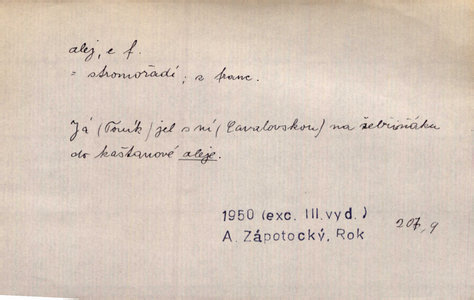 alej, e f.
= stromořadí; z franc.
Já (Toník) jel s ní (Cavalovskou) na žebřiňáku
do kaštanové aleje.
1950 (exc. III. vyd.)
A. Zápotocký, Rok
207, 9